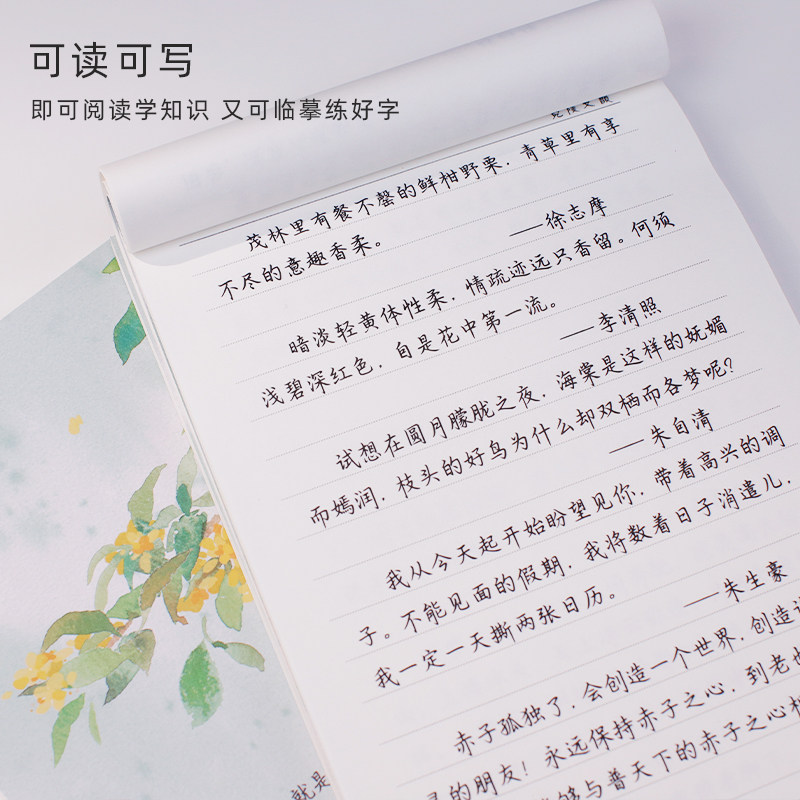 可读可写
即可阅读学知识 又可临摹练好字
茂林里有餐不罄的鲜柑野栗，青草里有享
不尽的意趣香柔。
——徐志摩
暗淡轻黄体性柔，情疏迹远只香留。何须
浅碧深红色，自是花中第一流。
——李清照
试想在圆月朦胧之夜，海棠是这样的妩媚
而嫣润，枝头的好鸟为什么却双栖而各梦呢？
——朱自清
我从今天起开始盼望见你，带着高兴的调
子。不能见面的假期，我将数着日子消遣儿，
我一定一天撕两张日历。
——朱生豪
赤子孤独了，会创造一个世界，创造
的朋友！永远保持赤子之心，到老也
够与普天下的赤子之心
就是